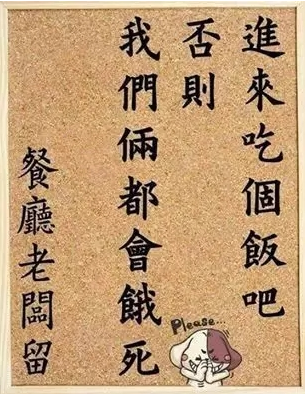 進來吃個飯吧
否則
我們倆都會餓死
餐廳老闆留
Please...